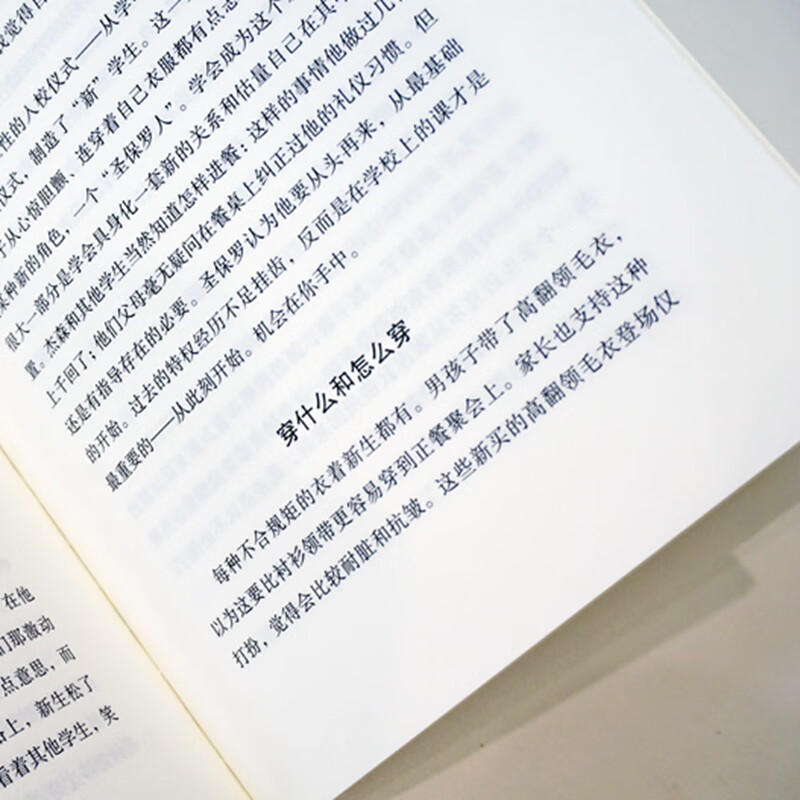 在他
们那激动
点意思，而
上，新生松了
看着其他学生，笑
觉得自
性的入校仪式——从学
仪式，制造了“新”学生。这一
于从心惊胆颤、连穿着自己衣服都有点
某种新的角色，一个“圣保罗人”。学会成为这个
很大一部分是学会具身化一套新的关系和估量自己在其
置。杰森和其他学生当然知道怎样进餐：这样的事情他做过几
上千回了；他们父母毫无疑问在餐桌上纠正过他的礼仪习惯。但
还是有指导存在的必要。圣保罗认为他要从头再来，从最基础
的开始。过去的特权经历不足挂齿，反而是在学校上的课才是
最重要的——从此刻开始。机会在你手中。
穿什么和怎么穿
每种不合规矩的衣着新生都有。男孩子带了高翻领毛衣，
以为这要比衬衫领带更容易穿到正餐聚会上。家长也支持这种
打扮，觉得会比较耐脏和抗皱。这些新买的高翻领毛衣登场仅